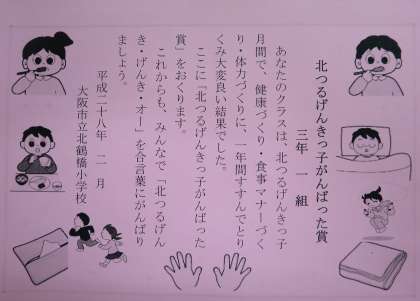 北つるげんきっ子がんばった賞
三年 一 組
あなたのクラスは、北つるげんきっ子
月間で、健康づくり・食事マナーづく
り・体力づくりに、一年間すすんでとり
くみ大変良い結果でした。
ここに「北つるげんきっ子がんばった
賞」をおくります。
これからも、みんなで「北つるげん
き・げんき・オー」を合言葉にがんばり
ましょう。
平成二十八年 二 月
大阪市立北鶴橋小学校